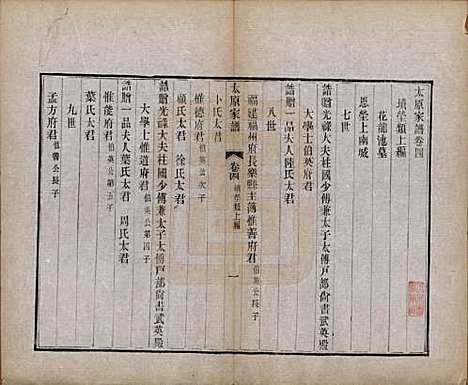 太原家譜卷四
塋墳類上編
花龍池墓
恩塋上南城
七世
誥贈光祿大夫柱國少傅兼太子太傅戶部尚書武英殿
大學士伯英府君
誥贈一品夫人陸氏太君
八世
福建福州府長樂縣主簿惟善府君伯英公長子
太原家譜 卷四 塋墳類上編 一
卜氏太君
惟德府君伯英公次子
顧氏太君 徐氏太君
誥贈光祿大夫柱國少傅兼太子太傅戶部尚書武英殿
大學士惟道府君伯英公第四子
誥贈一品夫人葉氏太君 周氏太君
惟能府君伯英公第五子
葉氏太君
九世
孟方府君惟善公長子